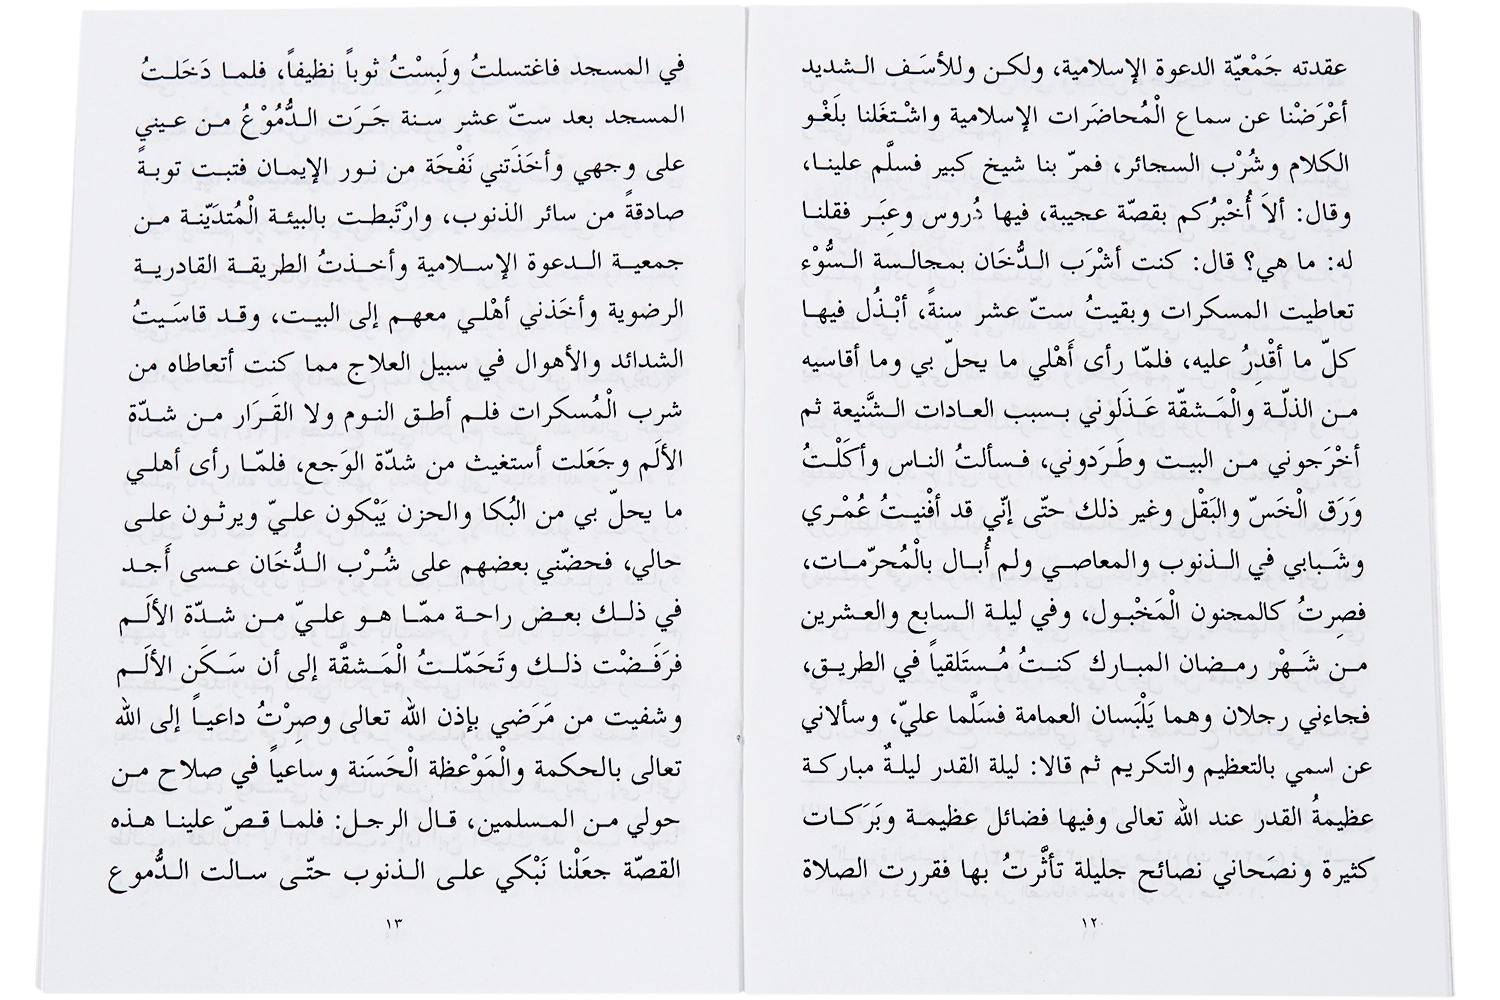 عقدته جَمْعيّة الدعوة الإسلامية، ولكن وللأسَف الشديد
أعْرَضْنا عن سماع الْمُحاضَرات الإسلامية واشْتغَلنا بلَغْو
الكلام وشُرْب السجائر، فمرّ بنا شيخ كبير فسلَّم علينا،
وقال: ألاَ أُخْبرُكم بقصّة عجيبة، فيها دُروس وعِبَر فقلنا
له: ما هي؟ قال: كنت أشْرَب الدُّخَان بمجالسة السُّوْء
تعاطيت المسكرات وبقيتُ ستّ عشر سنةً، أبْذُل فيها
كلّ ما أقْدِرُ عليه، فلمّا رأى أَهْلي ما يحلّ بي وما أقاسيه
من الذلّة والْمَشقّة عَذَلوني بسبب العادات الشَّنيعة ثم
أخْرَجوني من البيت وطَرَدوني، فسألتُ الناس وأكَلْتُ
وَرَق الْخَسّ والبَقْل وغير ذلك حتّى إنّي قد أفْنيتُ عُمْري
وشَبابي في الذنوب والمعاصي ولم أُبال بالْمُحرّمات،
فصِرتُ كالمجنون الْمَخْبول، وفي ليلة السابع والعشرين
من شَهْر رمضان المبارك كنتُ مُستَلقياً في الطريق،
فجاءني رجلان وهما يَلْبَسان العمامة فسَلَّما عليّ، وسألاني
عن اسمي بالتعظيم والتكريم ثم قالا: ليلة القدر ليلةٌ مباركة
عظيمةُ القدر عند الله تعالى وفيها فضائل عظيمة وبَرَكات
كثيرة ونصَحاني نصائح جليلة تأثَّرتُ بها فقررت الصلاة
١٢
في المسجد فاغتسلتُ ولَبِسْتُ ثوباً نظيفاً، فلما دَخَلتُ
المسجد بعد ستّ عشر سنة جَرَت الدُّمُوْعُ من عيني
على وجهي وأخَذَتني نَفْحَة من نور الإيمان فتبت توبةً
صادقةً من سائر الذنوب، وارْتَبطت بالبيئة الْمُتدَيّنة من
جمعية الدعوة الإسلامية وأخذتُ الطريقة القادرية
الرضوية وأخَذني أهْلي معهم إلى البيت، وقد قاسَيتُ
الشدائد والأهوال في سبيل العلاج مما كنت أتعاطاه من
شرب الْمُسكرات فلم أطق النوم ولا القَرَار من شدّة
الألَم وجَعَلت أستغيث من شدّة الوَجع، فلمّا رأى أهلي
ما يحلّ بي من البُكا والحزن يَبْكون عليّ ويرثون على
حالي، فحضّني بعضهم على شُرْب الدُّخَان عسى أَجد
في ذلك بعض راحة ممّا هو عليّ من شدّة الألَم
فرَفَضْت ذلك وتَحَمّلتُ الْمَشقَّة إلى أن سَكَن الألَم
وشفيت من مَرَضي بإذن الله تعالى وصِرْتُ داعياً إلى الله
تعالى بالحكمة والْمَوْعظة الْحَسَنة وساعياً في صلاح من
حولي من المسلمين، قال الرجل: فلما قصّ علينا هذه
القصّة جعَلْنا نَبْكي على الذنوب حتّى سالت الدُّموع
١٣